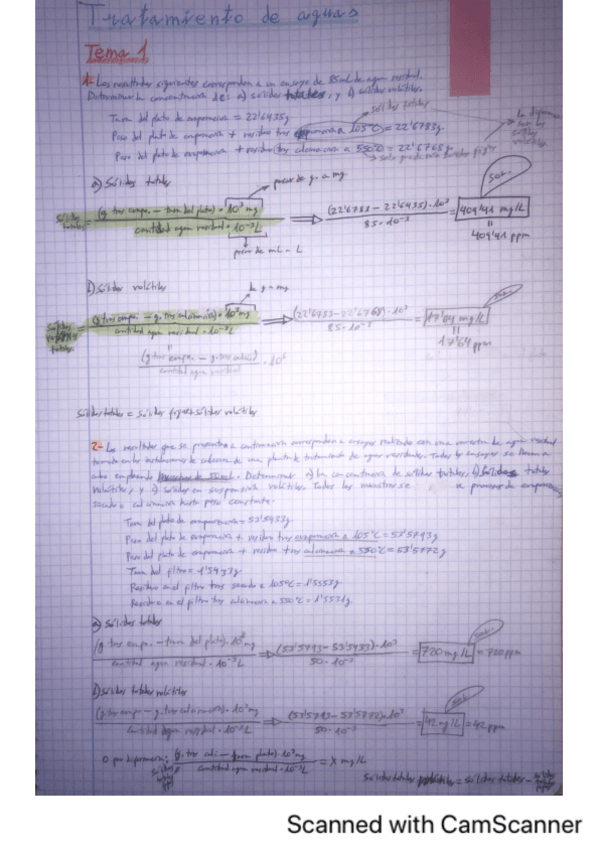 Tratamiento de aguas
Tema 1
1- Los resultados siguientes corresponden a un ensayo de 85mL de agua residual.
Determinar la concentración de: a) sólidos totales, y b) sólidos volátiles.
sólidos totales
Tara del plato de evaporación = 22'6435g
Peso del plato de evaporación + residuo tras evaporación a 105ºC = 22'6783g
Peso del plato de evaporación + residuo tras calcinación a 550ºC = 22'6768g
solo quedan los sólidos fijos
a) Sólidos totales
pasar de g a mg
Sólidos totales = (g tras evap. - tara del plato) · 10³ mg / cantidad agua residual · 10⁻³ L ⇒ (22'6783 - 22'6435) · 10³ / 85 · 10⁻³ = 409'41 mg/L
Sol.
409'41 ppm
pasar de mL a L
b) Sólidos volátiles
de g a mg
Sólidos volátiles totales = (g tras evap. - g. tras calcinación) · 10³ mg / cantidad agua residual · 10⁻³ L ⇒ (22'6783 - 22'6768) · 10³ / 85 · 10⁻³ = 17'64 mg/L
Sol.
17'64 ppm
(g tras evap. - g. tras calci.) / cantidad agua residual · 10⁶
Sólidos totales = Sólidos fijos + sólidos volátiles
2- Los resultados que se presentan a continuación corresponden a ensayos realizados con una muestra de agua residual
tomada en las instalaciones de cabecera de una planta de tratamiento de aguas residuales. Todos los ensayos se llevaron a
cabo empleando muestras de 50mL. Determinar: a) la concentración de sólidos totales, b) sólidos totales
volátiles, y c) sólidos en suspensión volátiles. Todas las muestras se a proceso de evaporación
secado o calcinación hasta peso constante.
Tara del plato de evaporación = 53'5433g
Peso del plato de evaporación + residuo tras evaporación a 105ºC = 53'5793g
Peso del plato de evaporación + residuo tras calcinación a 550ºC = 53'5772g
Tara del filtro = 1'5433g
Residuo en el filtro tras secado a 105ºC = 1'5553g
Residuo en el filtro tras calcinación a 550ºC = 1'5531g
a) Sólidos totales
(g tras evap. - tara del plato) · 10³ mg / cantidad agua residual · 10⁻³ L ⇒ (53'5793 - 53'5433) · 10³ / 50 · 10⁻³ = 720 mg/L = 720 ppm
Sol.
b) Sólidos totales volátiles
(g tras evap - g. tras calcinación) · 10³ mg / cantidad agua residual · 10⁻³ L ⇒ (53'5793 - 53'5772) · 10³ / 50 · 10⁻³ = 42 mg/L = 42 ppm
Sol.
O por diferencia: (g. tras calci - tara plato) · 10³ mg / cantidad agua residual · 10⁻³ L = X mg/L
Sólidos totales volátiles = sólidos totales -
Scanned with CamScanner